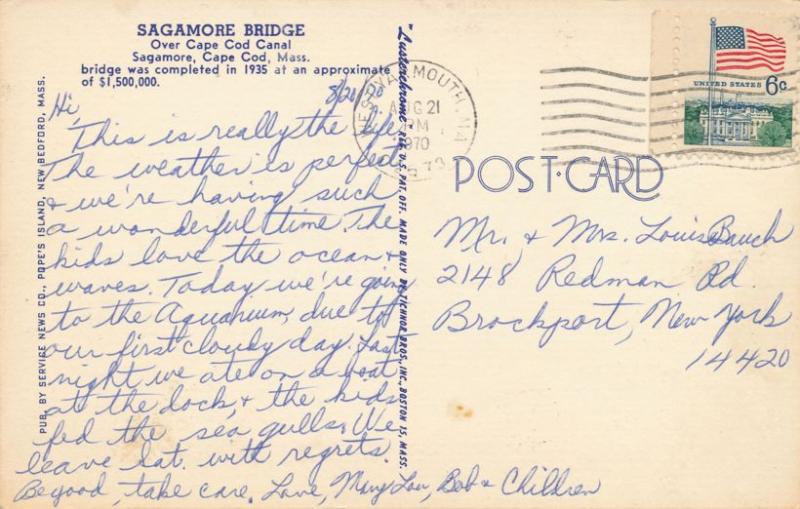 SAGAMORE BRIDGE
Over Cape Cod Canal
Sagamore, Cape Cod, Mass.
bridge was completed in 1935 at an approximate
of $1,500,000.
8/21/70
Hi,
This is really the life.
The weather is perfect
& we're having such
a wonderful time. The
kids love the ocean &
waves. Today we're going
to the Aquarium, due to
our first cloudy day. Last
night we ate on a boat
at the dock, & the kids
fed the sea gulls. We
leave Sat. with regrets.
Be good, take care. Love, Mary Lou, Bob & Children
PUB. BY SERVICE NEWS CO., POPE'S ISLAND, NEW BEDFORD, MASS.
"Lusterchrome" REG. U.S. PAT. OFF. MADE ONLY BY TICHNOR BROS., INC., BOSTON 15, MASS.
YARMOUTH, MA
AUG 21
PM
1970
UNITED STATES 6c
POST-CARD
Mr. & Mrs. Louis Bauch
2148 Redman Rd.
Brockport, New York
14420